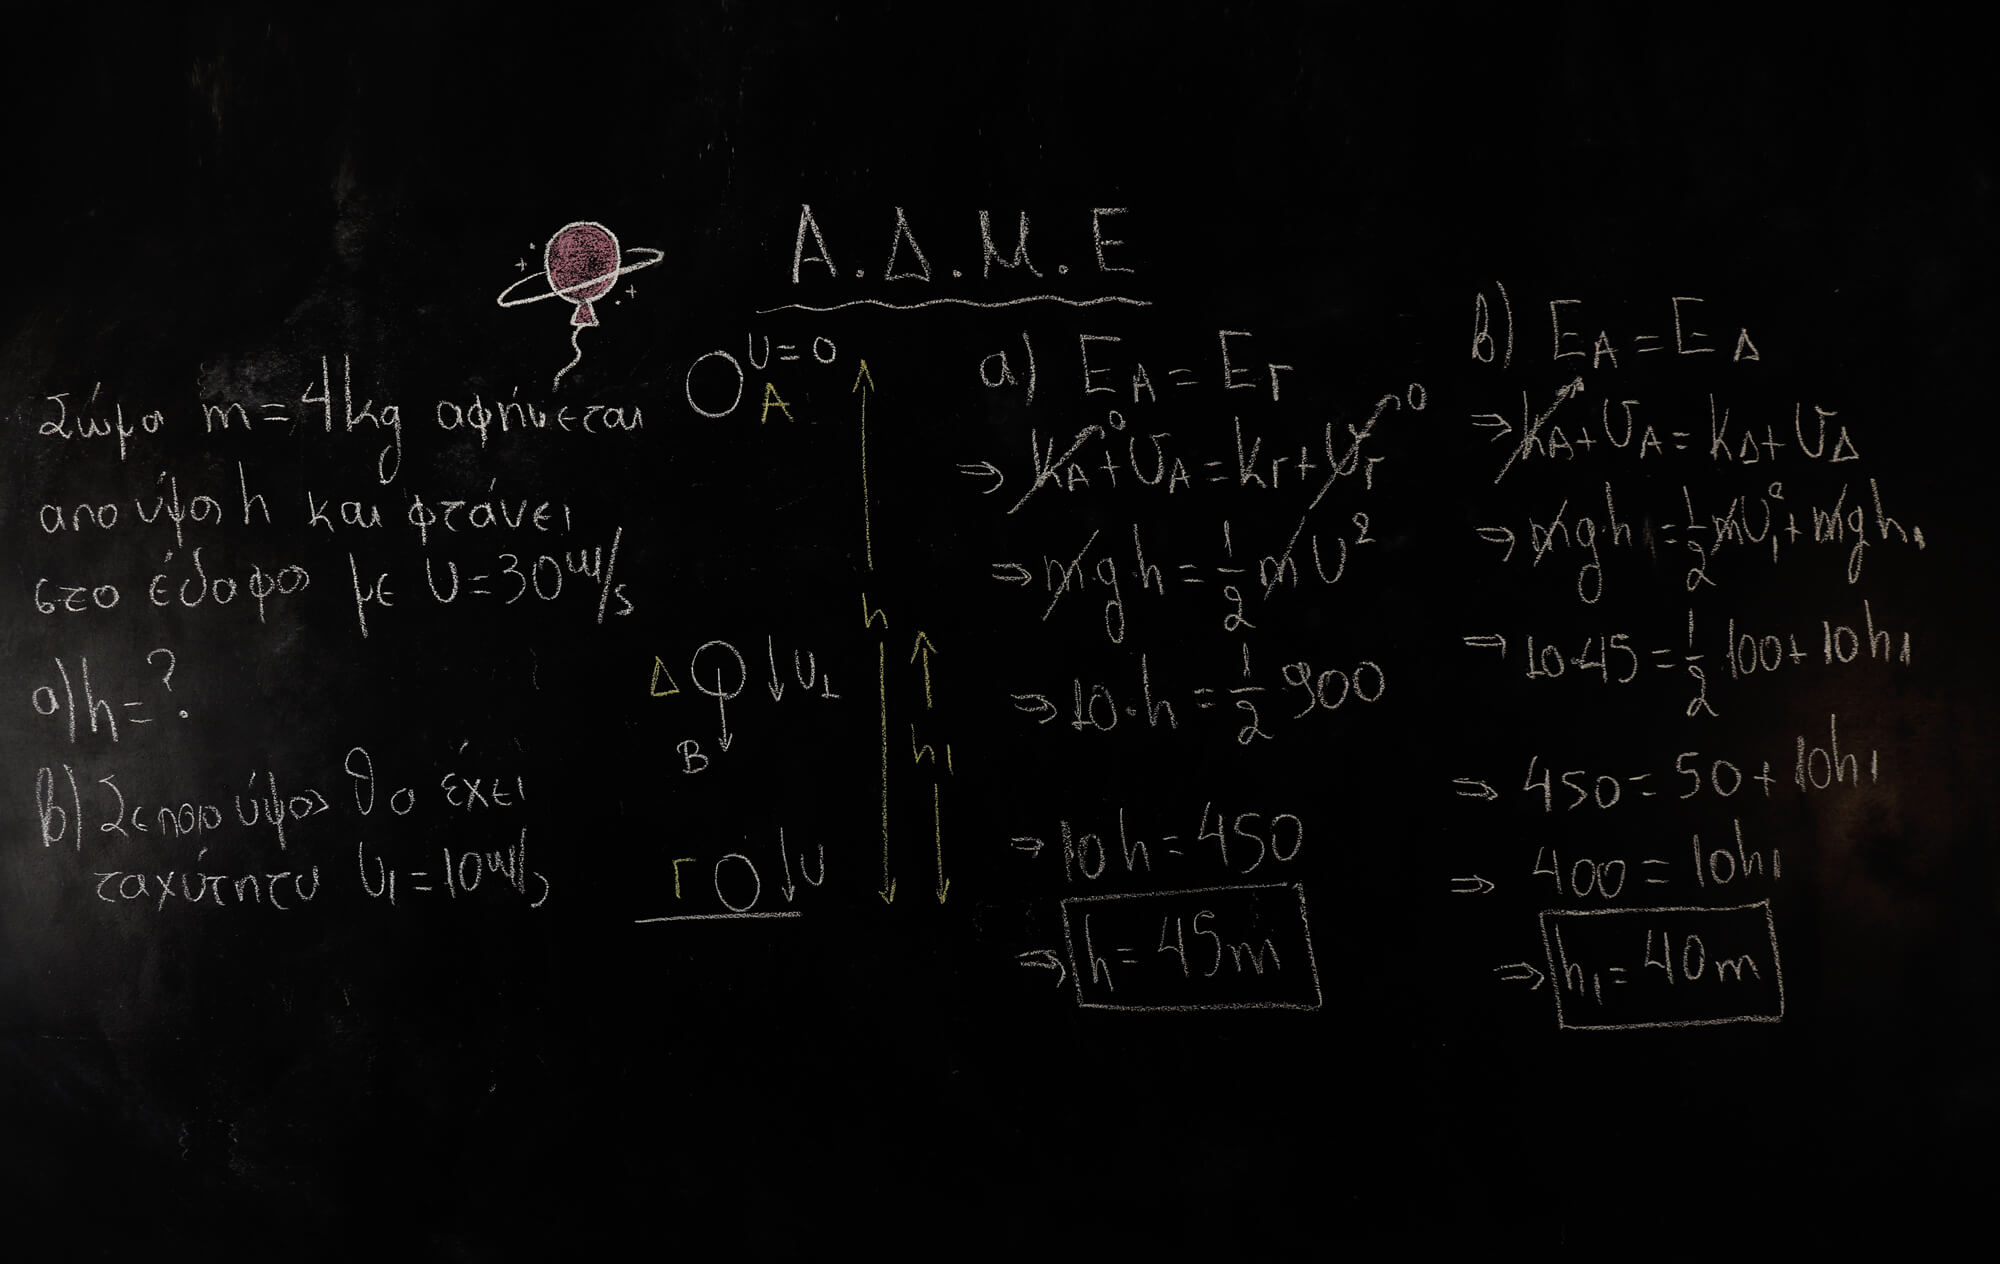 Α.Δ.Μ.Ε
Σώμα m=4kg αφήνεται
απο ύψος h και φτάνει
στο έδαφος με υ=30m/s
α) h=?
β) Σε ποιο ύψος θα έχει
ταχύτητα υ1=10m/s
υ=0
Α
h
Δ
υ1
Β
h1
Γ
υ
α) ΕΑ=ΕΓ
⇒ KA+UA=KΓ+UΓ
0
0
⇒ m·g·h=1/2 m υ²
⇒ 10·h=1/2 900
⇒ 10h=450
⇒ h=45m
β) ΕΑ=ΕΔ
⇒ KA+UA=KΔ+UΔ
⇒ mgh=1/2 mυ1²+mgh1
⇒ 10·45=1/2 100+10h1
⇒ 450=50+10h1
⇒ 400=10h1
⇒ h1=40m